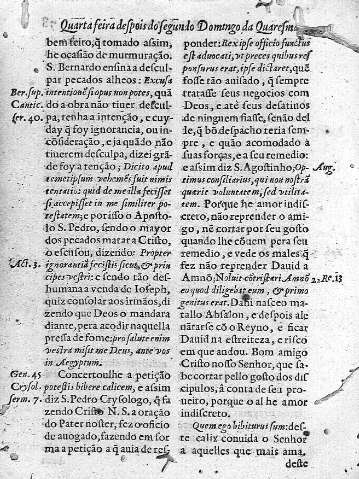 Quarta feira despois do segundo Domingo da Quaresma
bem feito, q̃ tomado assim,
he ocasião de murmuração.
S. Bernardo ensina a descul-
par pecados alheos: Excusa
Ber. sup.
intentionẽ si opus non potes, quã
Cantic.
do a obra não tiuer descul-
ser. 40.
pa, tenha a intenção, e cuy-
day q̃ foy ignorancia, ou in-
cõsideração, e ja quãdo não
tiuerem desculpa, dizei grã-
de foy a tenção; Dicito apud
temetipsum vehemẽs fuit nimis
tentatio: quid de me illa fecisset
si accepisset in me similiter po-
testatem; e por isso o Aposto-
lo S. Pedro, sendo o mayor
dos pecados matar a Cristo,
o escusou, dizendo: Propter
Act. 3.
ignorantiã fecistis sicut, & prin
cipes vestri: e sendo tão des-
humana a venda de Ioseph,
quiz consolar aos irmãos, di-
zendo que Deos o mandara
diante, pera acodir naquella
pressa de fome: pro salute enim
vestra misit me Deus, ante vos
in Aegyptum.
Gen. 45
Concertoulhe a petição
Crysol.
potestis bibere calicem, e assim
serm. 7.
diz S. Pedro Crysologo, q̃ fa
zendo Cristo N. S. a oração
do Pater noster, fez o oficio
de auogado, fazendo em for
ma a petição a q̃ auia de res-
ponder: Rex ipse officio functus
est aduocati, vt preces quibus res
ponsurus erat, ipse dictaret, que
fosse tão auisado, q̃ sempre
tratasse seus negocios com
Deos, e até seus desatinos
de ninguem fiasse, senão del
le, q̃ bõ despacho teria sem-
pre, e quão acomodado à
suas forças, e a seu remedio:
e assim diz S. Agostinho, Op-
Aug.
timus consiliarius, qui non nostrã
querit voluntatem, sed vtilita
tem. Porque he amor indis-
creto, não reprender o ami-
go, nẽ cortar por seu gosto
quando lhe cõuem pera seu
remedio, e vede os males q̃
fez não reprender Dauid a
Amnõ, Noluit cõtristari Amnõ
2. Re. 13
eo quod diligebat eum, & primo
genitus erat. Dahi nasceo ma-
tallo Absalon, e despois ale
nãtarse cõ o Reyno, e ficar
Dauid na estreiteza, e risco
em que andou. Bom amigo
Cristo nosso Senhor, que sa-
be cortar pello gosto dos dis
cipulos, à conta de seu pro-
ueito, porque o al he amor
indiscreto.
Quem ego bibiturus sum: des-
te caliz conuida o Senhor
a aquelles que mais ama,
deste